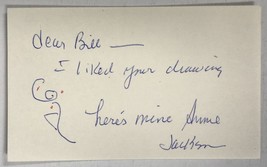 Dear Bill —
I liked your drawing
here's mine Anne
Jackson